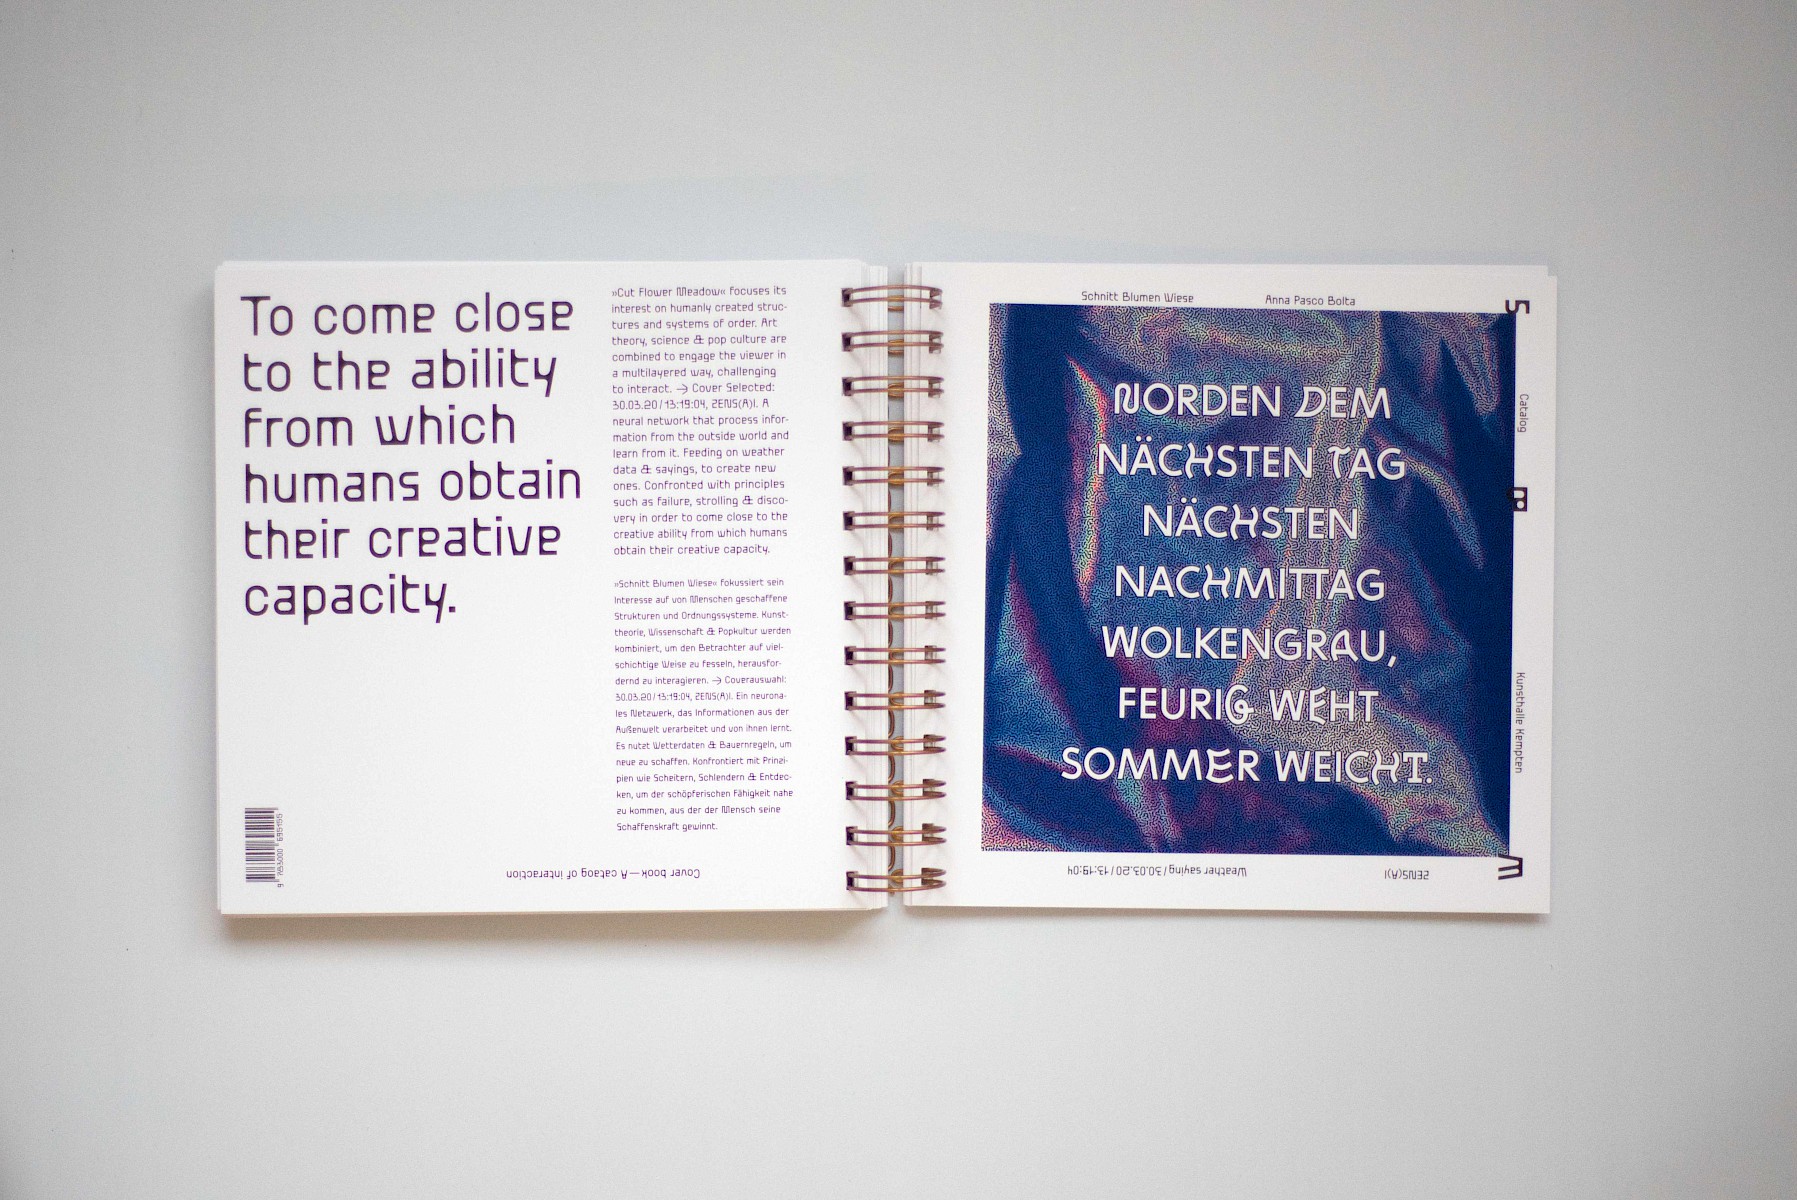 To come close
to the ability
from which
humans obtain
their creative
capacity.
»Cut Flower Meadow« focuses its
interest on humanly created struc-
tures and systems of order. Art
theory, science & pop culture are
combined to engage the viewer in
a multilayered way, challenging
to interact. → Cover Selected:
30.03.20 / 13:19:04, ZENS(A)I. A
neural network that process infor-
mation from the outside world and
learn from it. Feeding on weather
data & sayings, to create new
ones. Confronted with principles
such as failure, strolling & disco-
very in order to come close to the
creative ability from which humans
obtain their creative capacity.
»Schnitt Blumen Wiese« fokussiert sein
Interesse auf von Menschen geschaffene
Strukturen und Ordnungssysteme. Kunst-
theorie, Wissenschaft & Popkultur werden
kombiniert, um den Betrachter auf viel-
schichtige Weise zu fesseln, herausfor-
dernd zu interagieren. → Coverauswahl:
30.03.20 / 13:19:04, ZENS(A)I. Ein neurona-
les Netzwerk, das Informationen aus der
Außenwelt verarbeitet und von ihnen lernt.
Es nutzt Wetterdaten & Bauernregeln, um
neue zu schaffen. Konfrontiert mit Prinzi-
pien wie Scheitern, Schlendern & Entdec-
ken, um der schöpferischen Fähigkeit nahe
zu kommen, aus der der Mensch seine
Schaffenskraft gewinnt.
Cover book — A cataog of interaction
Schnitt Blumen Wiese
Anna Pasco Bolta
NORDEN DEM
NÄCHSTEN TAG
NÄCHSTEN
NACHMITTAG
WOLKENGRAU,
FEURIG WEHT
SOMMER WEICHT.
S
Catalog
B
Kunsthalle Kempten
W
Weather saying / 30.03.20 / 13:19:04
ZENS(A)I